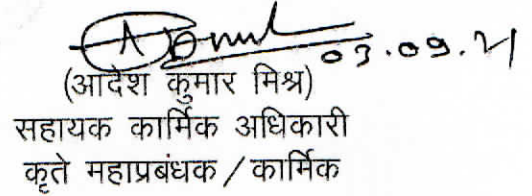 03.09.21
(आदेश कुमार मिश्र)
सहायक कार्मिक अधिकारी
कृते महाप्रबंधक / कार्मिक